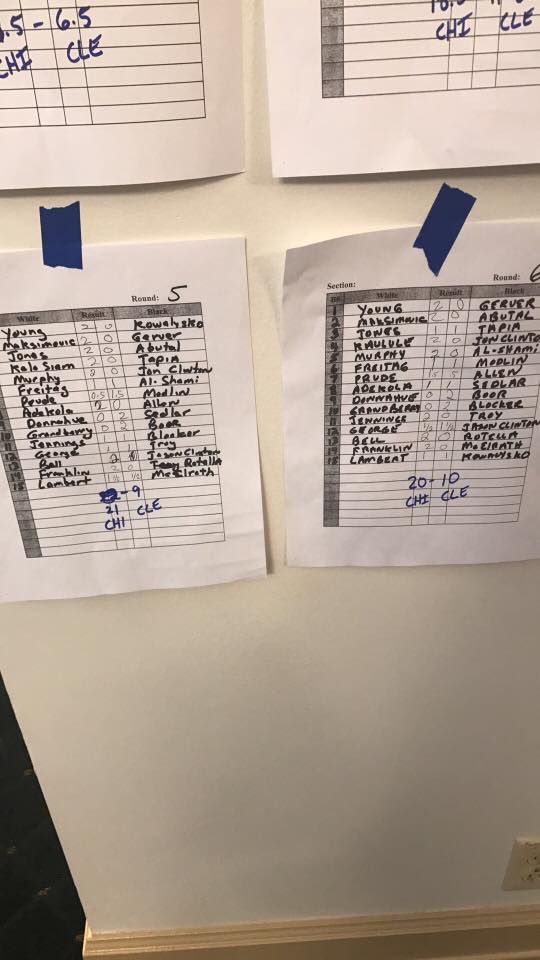 .5 - 6.5
CHI CLE
CHI CLE
Round: 5
White Result Black
Young 2 0 Kowalysko
Maksimovic 2 0 Gerver
Jones 2 0 Abutal
Kalo Siam 2 0 Tapia
Murphy 2 0 Jon Clinton
Freitag 1 1 Al-Shami
Prude 0.5 1.5 Modlin
Adekola 2 0 Allen
Donnahue 0 2 Sedlar
Grandberry 0 2 Boor
Jennings Blocker
George 1 1 Troy
Bell 2 Jason Clinton
Franklin 2 0 Rotella
Lambert 1½ ½ McElrath
21 - 9
CHI CLE
Section: Round: 6
White Result Black
1 YOUNG 2 0 GERVER
2 MAKSIMOVIC 2 0 ABUTAL
3 JONES 1 1 TAPIA
4 KAULULE 2 0 JON CLINTO
5 MURPHY 2 0 AL-SHAMI
6 FREITAG MODLIN
7 PRUDE 1.5 .5 ALLEN
8 ADEKOLA 1 1 SEDLAR
9 DONNAHUE 0 2 BOOR
10 GRANDBERRY 0 2 BLOCKER
11 JENNINGS 2 0 TROY
12 GEORGE ½ 1½ JASON CLINTON
13 BELL 2 0 ROTELLA
14 FRANKLIN 2 0 McELRATH
15 LAMBERT KOWALYSKO
20 - 10
CHI CLE